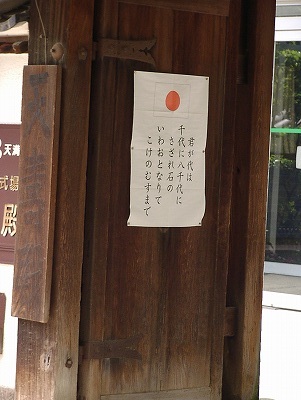 君が代は
千代に八千代に
さざれ石の
いわおとなりて
こけのむすまで
天満
式場
殿